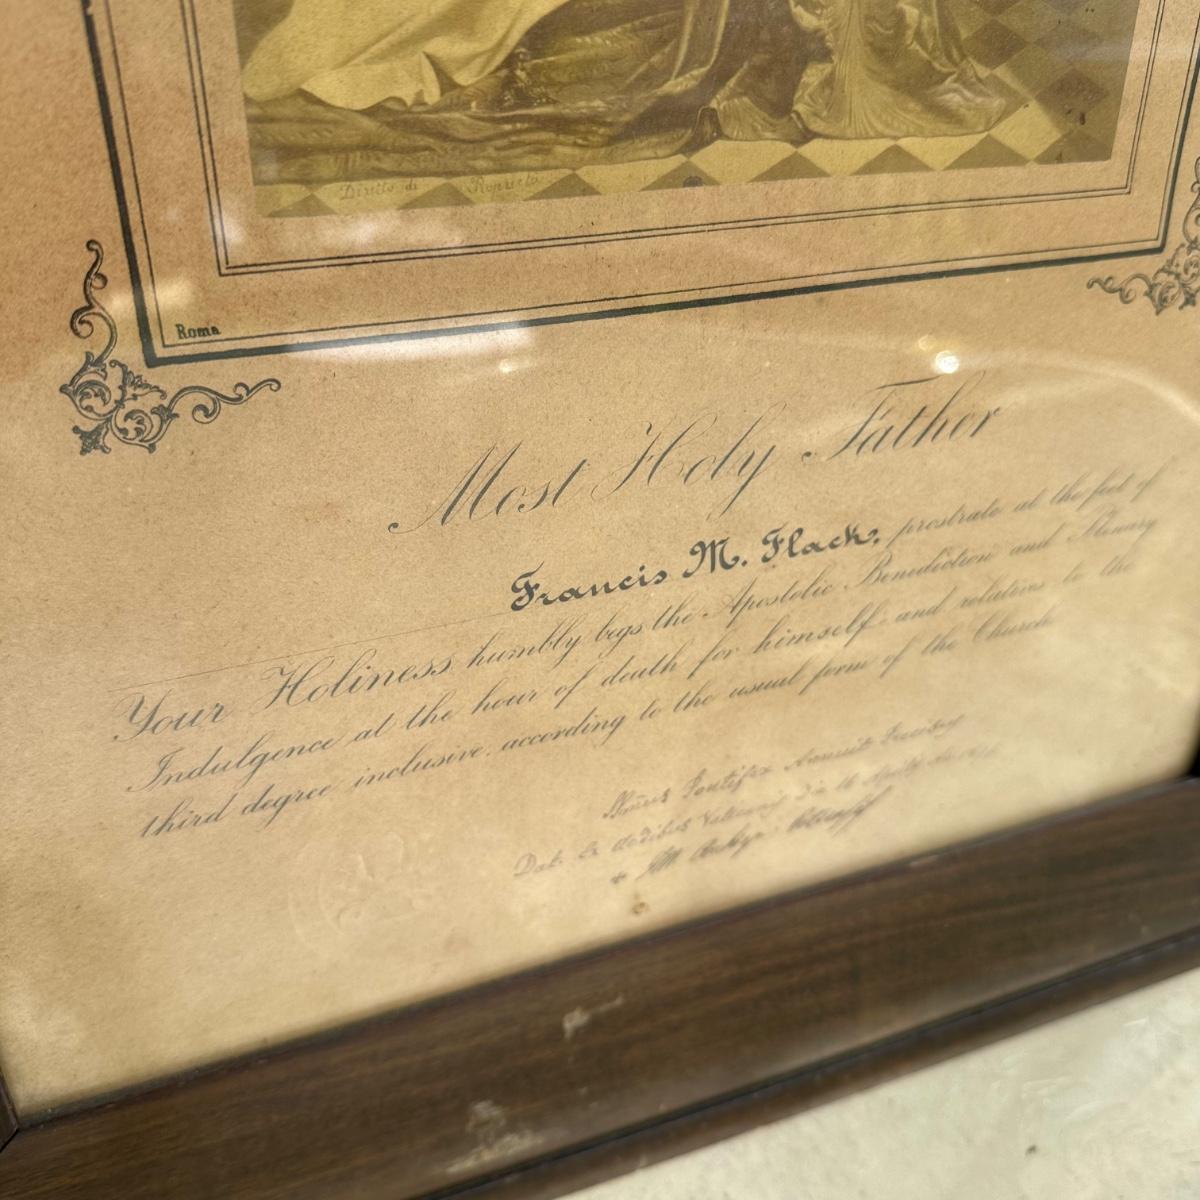 Diritto di Proprietà
Roma
Most Holy Father
Francis M. Flack, prostrate at the feet of
Your Holiness humbly begs the Apostolic Benediction and Plenary
Indulgence at the hour of death for himself and relations to the
third degree inclusive, according to the usual form of the Church
Pontifex Annuit
Dat. Ex Aedibus